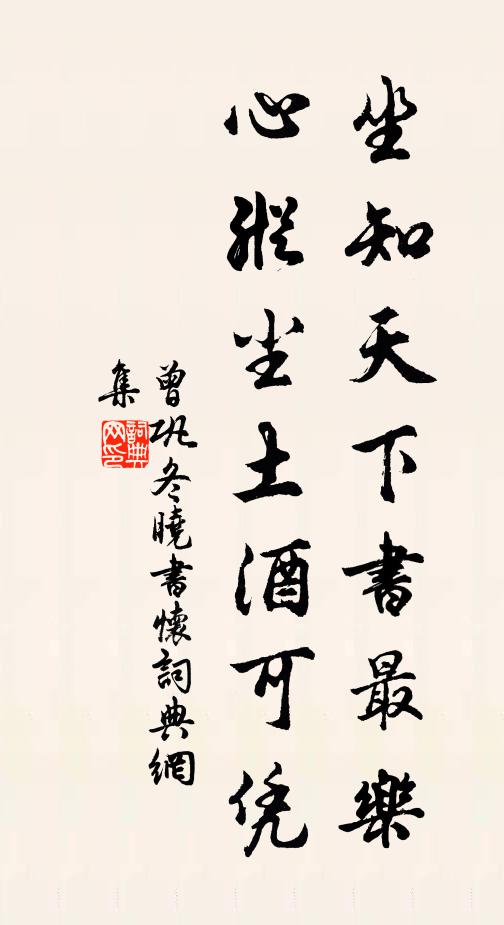 坐知天下書最樂
心縱塵土酒可凭
曾巩冬曉書懷詞典網
集
詞典
网印